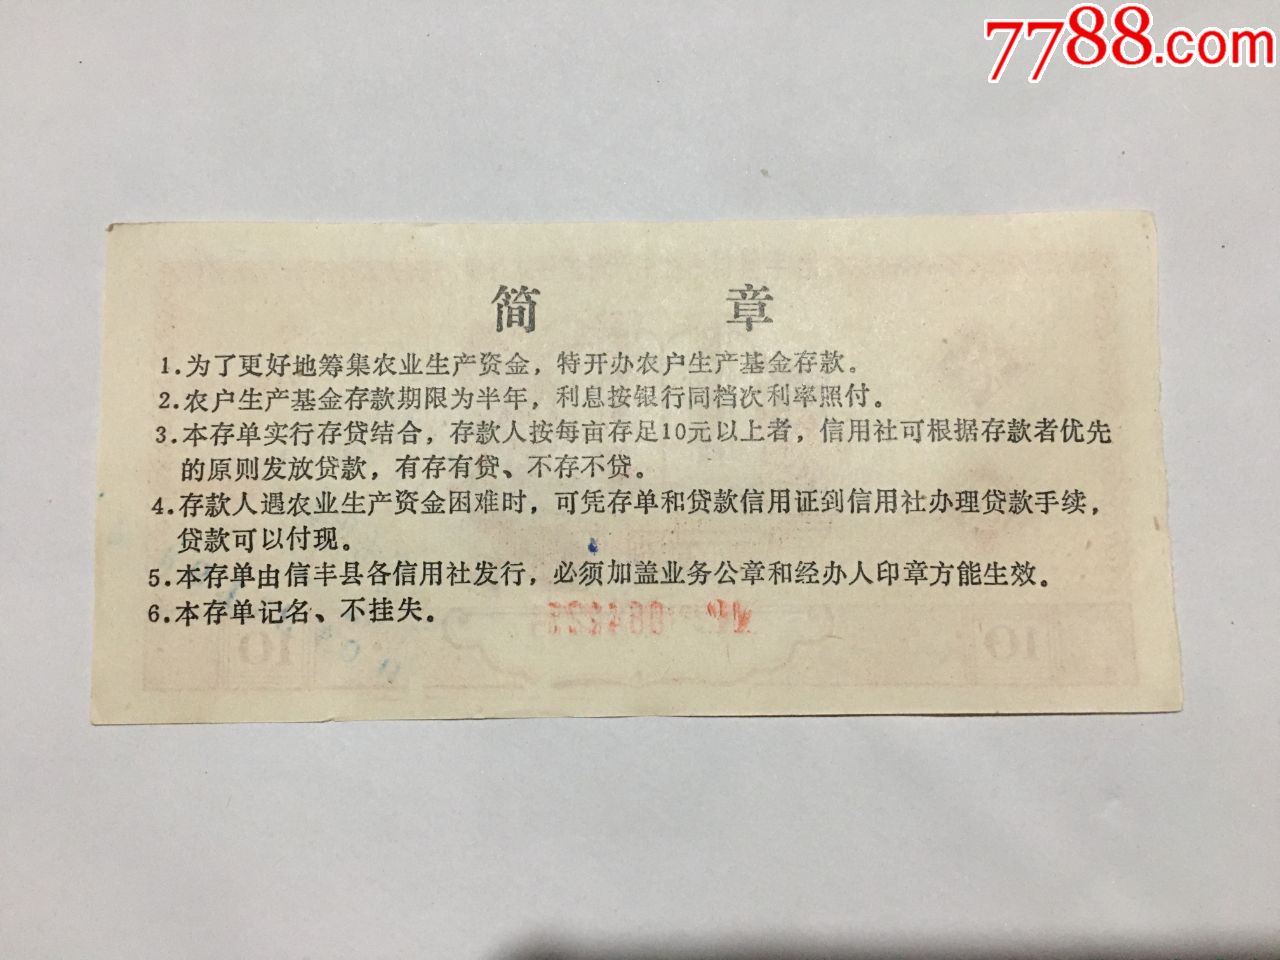 7788.com
简 章
1.为了更好地筹集农业生产资金，特开办农户生产基金存款。
2.农户生产基金存款期限为半年，利息按银行同档次利率照付。
3.本存单实行存贷结合，存款人按每亩存足10元以上者，信用社可根据存款者优先
的原则发放贷款，有存有贷、不存不贷。
4.存款人遇农业生产资金困难时，可凭存单和贷款信用证到信用社办理贷款手续，
贷款可以付现。
5.本存单由信丰县各信用社发行，必须加盖业务公章和经办人印章方能生效。
6.本存单记名、不挂失。
10 10